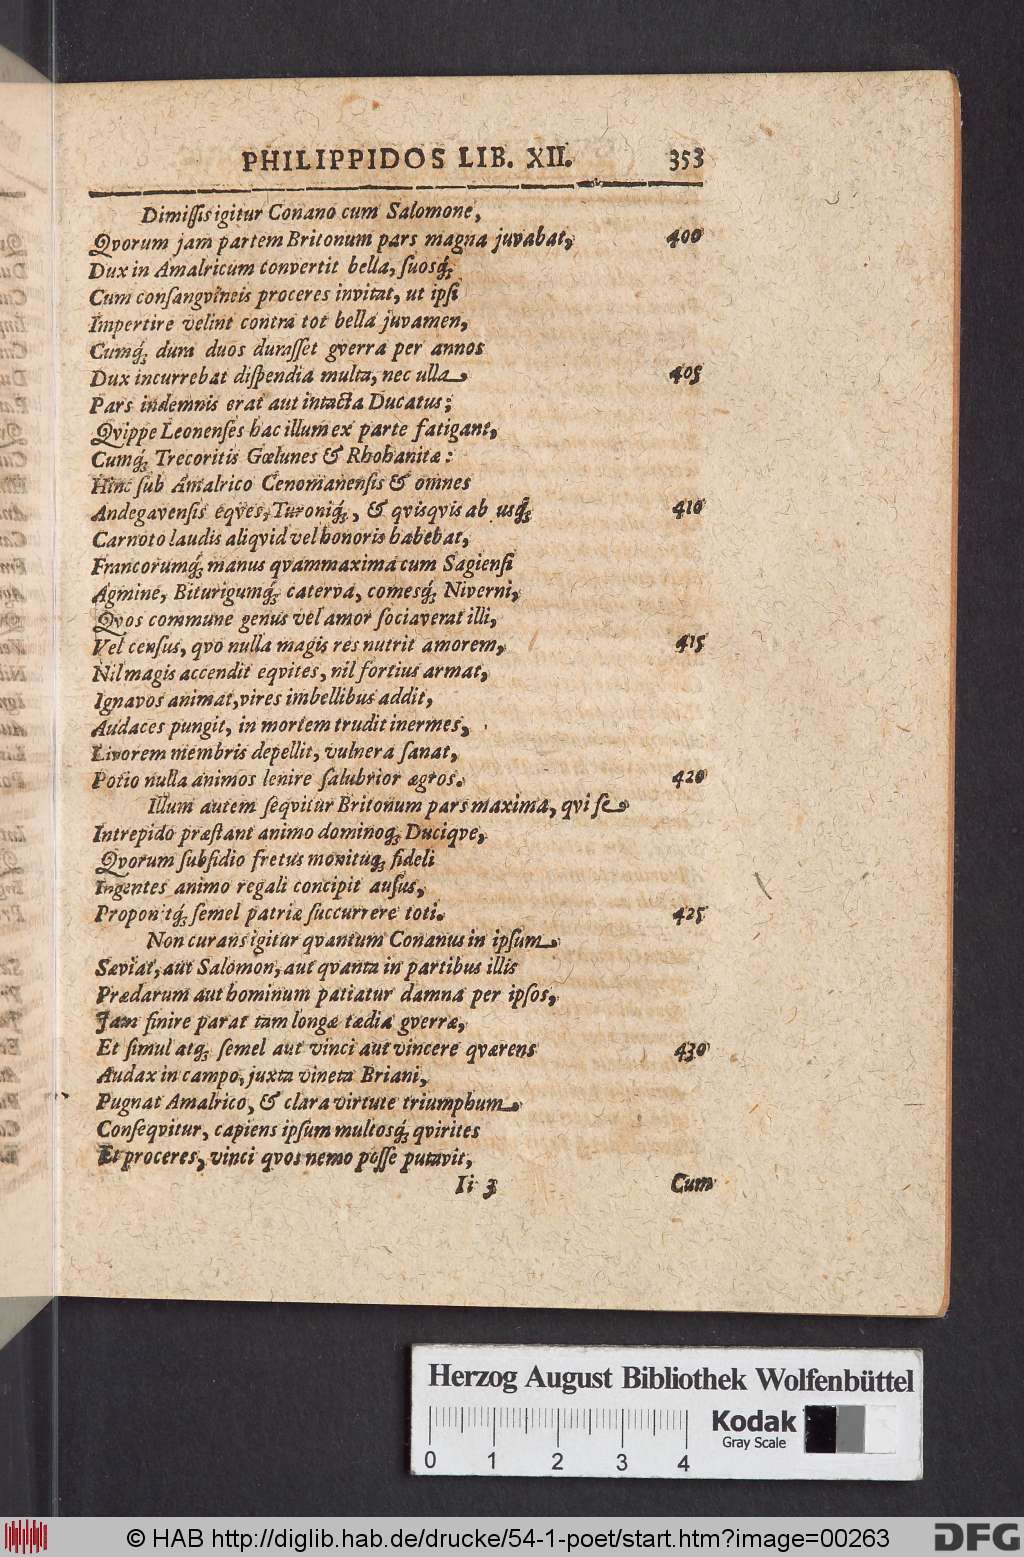 PHILIPPIDOS LIB. XII. 353
Dimiſſis igitur Conano cum Salomone,
Qvorum jam partem Britonum pars magna juvabat, 400
Dux in Amalricum convertit bella, ſuosq́;
Cum conſangvineis proceres invitat, ut ipſi
Impertire velint contra tot bella juvamen,
Cumq́; dura duos duraſſet gverra per annos
Dux incurrebat diſpendia multa, nec ulla 405
Pars indemnis erat aut intacta Ducatus;
Qvippe Leonenſes hac illum ex parte fatigant,
Cumq́; Trecoritis Gœlunes & Rhohanitæ:
Hinc ſub Amalrico Cenomanenſis & omnes
Andegavenſis eqves, Turoniq́;, & qvisqvis ab usq́; 410
Carnoto laudis aliqvid vel honoris habebat,
Francorumq́; manus qvammaxima cum Sagienſi
Agmine, Biturigumq́; caterva, comesq́; Niverni,
Qvos commune genus vel amor ſociaverat illi,
Vel cenſus, qvo nulla magis res nutrit amorem, 415
Nil magis accendit eqvites, nil fortius armat,
Ignavos animat, vires imbellibus addit,
Audaces pungit, in mortem trudit inermes,
Livorem membris depellit, vulnera ſanat,
Potio nulla animos lenire ſalubrior ægros. 420
Illum autem ſeqvitur Britonum pars maxima, qvi ſe
Intrepido præſtant animo dominoq; Duciqve,
Qvorum ſubſidio fretus monituq; fideli
Ingentes animo regali concipit auſus,
Proponitq́; ſemel patriæ ſuccurrere toti. 425
Non curans igitur qvantum Conanus in ipſum
Sæviat, aut Salomon, aut qvanta in partibus illis
Prædarum aut hominum patiatur damna per ipſos,
Jam finire parat tam longæ tædia gverræ,
Et ſimul atq; ſemel aut vinci aut vincere qværens 430
Audax in campo, juxta vineta Briani,
Pugnat Amalrico, & clara virtute triumphum
Conſeqvitur, capiens ipſum multosq́; qvirites
Et proceres, vinci qvos nemo poſſe putavit,
Ii 3 Cum
Herzog August Bibliothek Wolfenbüttel
Kodak
Gray Scale
0 1 2 3 4
© HAB http://diglib.hab.de/drucke/54-1-poet/start.htm?image=00263
DFG